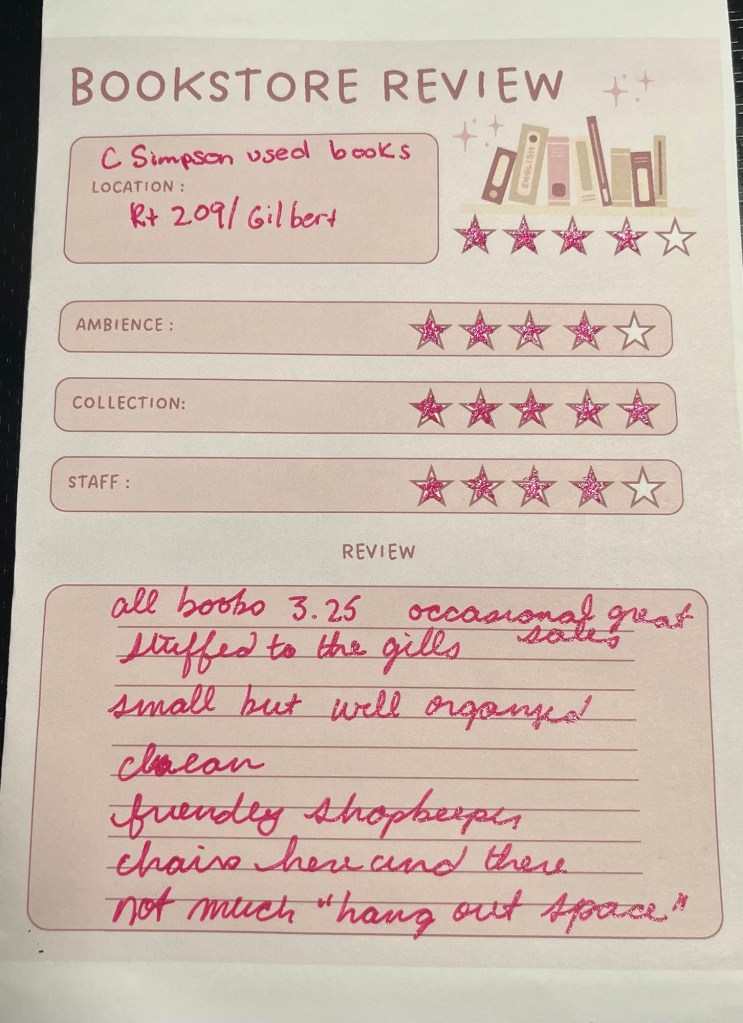 BOOKSTORE REVIEW
C Simpson used books
LOCATION :
Rt 209/Gilbert
ENGLISH
AMBIENCE :
COLLECTION:
STAFF :
REVIEW
all books 3.25 occasional great
sales
stuffed to the gills
small but well organized
clean
friendly shopkeeper
chairs here and there
not much "hang out space"